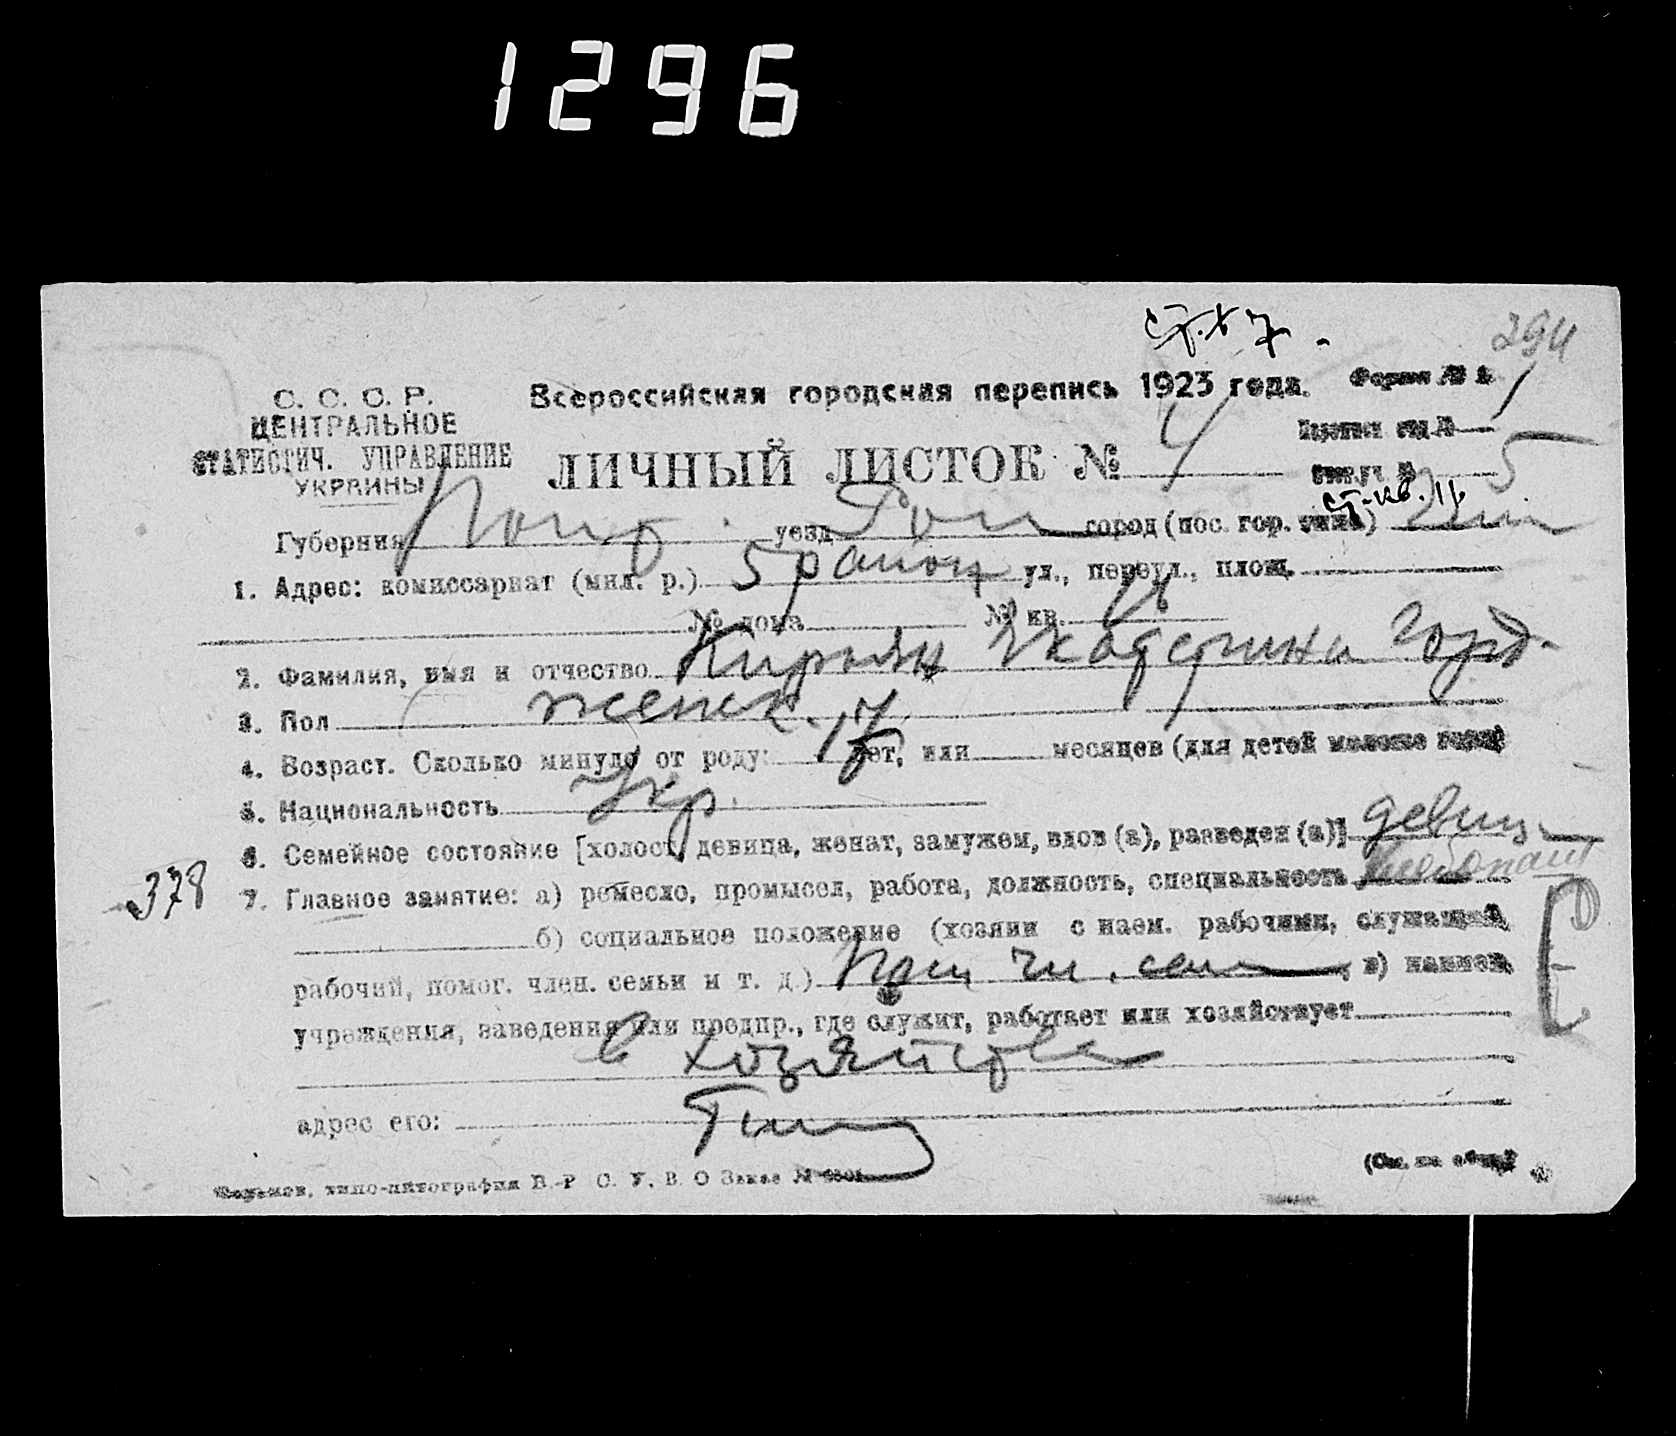 1296
ст. х 7.
294
С. С. С. Р.
ЦЕНТРАЛЬНОЕ
СТАТИСТИЧ. УПРАВЛЕНИЕ
УКРАИНЫ
Всероссийская городская перепись 1923 года.
Форма № 1
ЛИЧНЫЙ ЛИСТОК № 4
5
Губерния уезд город (пос. гор. типа)
1. Адрес: комиссариат (мил. р.) 5 район ул., переул., площ.
№ дома № кв.
2. Фамилия, имя и отчество Кирьян Екатерина Горд.
3. Пол женск.
4. Возраст. Сколько минуло от роду: 17 лет, или месяцев (для детей моложе года)
5. Национальность Укр.
6. Семейное состояние [холост, девица, женат, замужем, вдов (а), разведен (а)] девица
378
7. Главное занятие: а) ремесло, промысел, работа, должность, специальность
б) социальное положение (хозяин с наем. рабочими, служащий,
рабочий, помог. член. семьи и т. д.) Пом. чл. сем в) наимен.
учреждения, заведения или предпр., где служит, работает или хозяйствует
в хозяйстве
адрес его:
(См. на обор.)